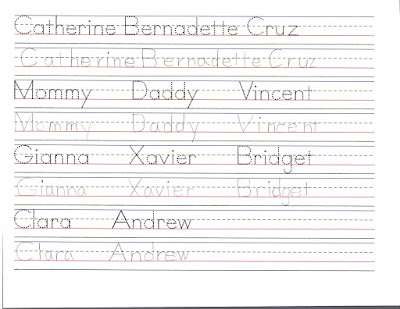 Catherine Bernadette Cruz
Catherine Bernadette Cruz
Mommy Daddy Vincent
Mommy Daddy Vincent
Gianna Xavier Bridget
Gianna Xavier Bridget
Clara Andrew
Clara Andrew